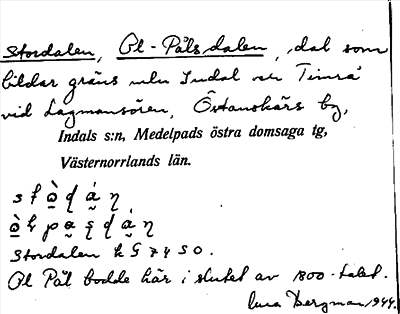 Stordalen, Ol-Pålsdalen, dal som
bildar gräns mln Indal och Timrå
vid Lagmansören, Östanskärs by,
Indals s:n, Medelpads östra domsaga tg,
Västernorrlands län.
Stordalen k G 7450.
Ol Pål bodde här i slutet av 1800-talet.
Bergman 1944.